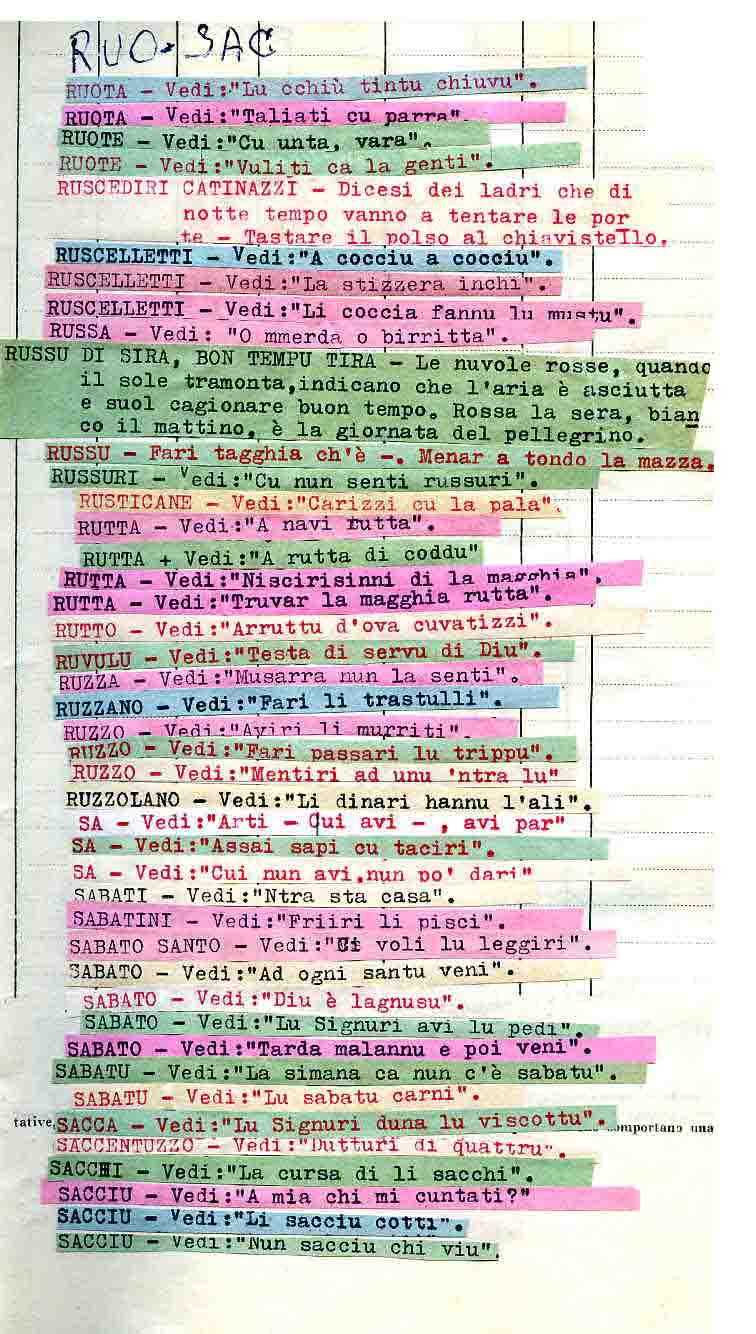 RUO - SAC
RUOTA - Vedi:"Lu cchiù tintu chiuvu".
RUOTA - Vedi:"Taliati cu parra".
RUOTE - Vedi:"Cu unta, vara".
RUOTE - Vedi:"Vuliti ca la genti".
RUSCEDIRI CATINAZZI - Dicesi dei ladri che di
notte tempo vanno a tentare le por
te - Tastare il polso al chiavistello.
RUSCELLETTI - Vedi:"A cocciu a cocciu".
RUSCELLETTI - Vedi:"La stizzera inchi".
RUSCELLETTI - Vedi:"Li coccia fannu lu mustu".
RUSSA - Vedi: "O mmerda o birritta".
RUSSU DI SIRA, BON TEMPU TIRA - Le nuvole rosse, quando
il sole tramonta,indicano che l'aria è asciutta
e suol cagionare buon tempo. Rossa la sera, bian
co il mattino, è la giornata del pellegrino.
RUSSU - Fari tagghia ch'è -. Menar a tondo la mazza.
RUSSURI - Vedi:"Cu nun senti russuri".
RUSTICANE - Vedi:"Carizzi cu la pala".
RUTTA - Vedi:"A navi rutta".
RUTTA + Vedi:"A rutta di coddu"
RUTTA - Vedi:"Niscirisinni di la magghia".
RUTTA - Vedi:"Truvar la magghia rutta".
RUTTO - Vedi:"Arruttu d'ova cuvatizzi".
RUVULU - Vedi:"Testa di servu di Diu".
RUZZA - Vedi:"Musarra nun la senti".
RUZZANO - Vedi:"Fari li trastulli".
RUZZO - Vedi:"Aviri li murriti".
RUZZO - Vedi:"Fari passari lu trippu".
RUZZO - Vedi:"Mentiri ad unu 'ntra lu"
RUZZOLANO - Vedi:"Li dinari hannu l'ali".
SA - Vedi:"Arti - Cui avi - , avi par"
SA - Vedi:"Assai sapi cu taciri".
SA - Vedi:"Cui nun avi,nun po' dari"
SABATI - Vedi:"Ntra sta casa".
SABATINI - Vedi:"Friiri li pisci".
SABATO SANTO - Vedi:"Si voli lu leggiri".
SABATO - Vedi:"Ad ogni santu veni".
SABATO - Vedi:"Diu è lagnusu".
SABATO - Vedi:"Lu Signuri avi lu pedi".
SABATO - Vedi:"Tarda malannu e poi veni".
SABATU - Vedi:"La simana ca nun c'è sabatu".
SABATU - Vedi:"Lu sabatu carni".
tative, SACCA - Vedi:"Lu Signuri duna lu viscottu". omportano una
SACCENTUZZO - Vedi:"Dutturi di quattru".
SACCHI - Vedi:"La cursa di li sacchi".
SACCIU - Vedi:"A mia chi mi cuntati?"
SACCIU - Vedi:"Li sacciu cotti".
SACCIU - Vedi:"Nun sacciu chi viu".